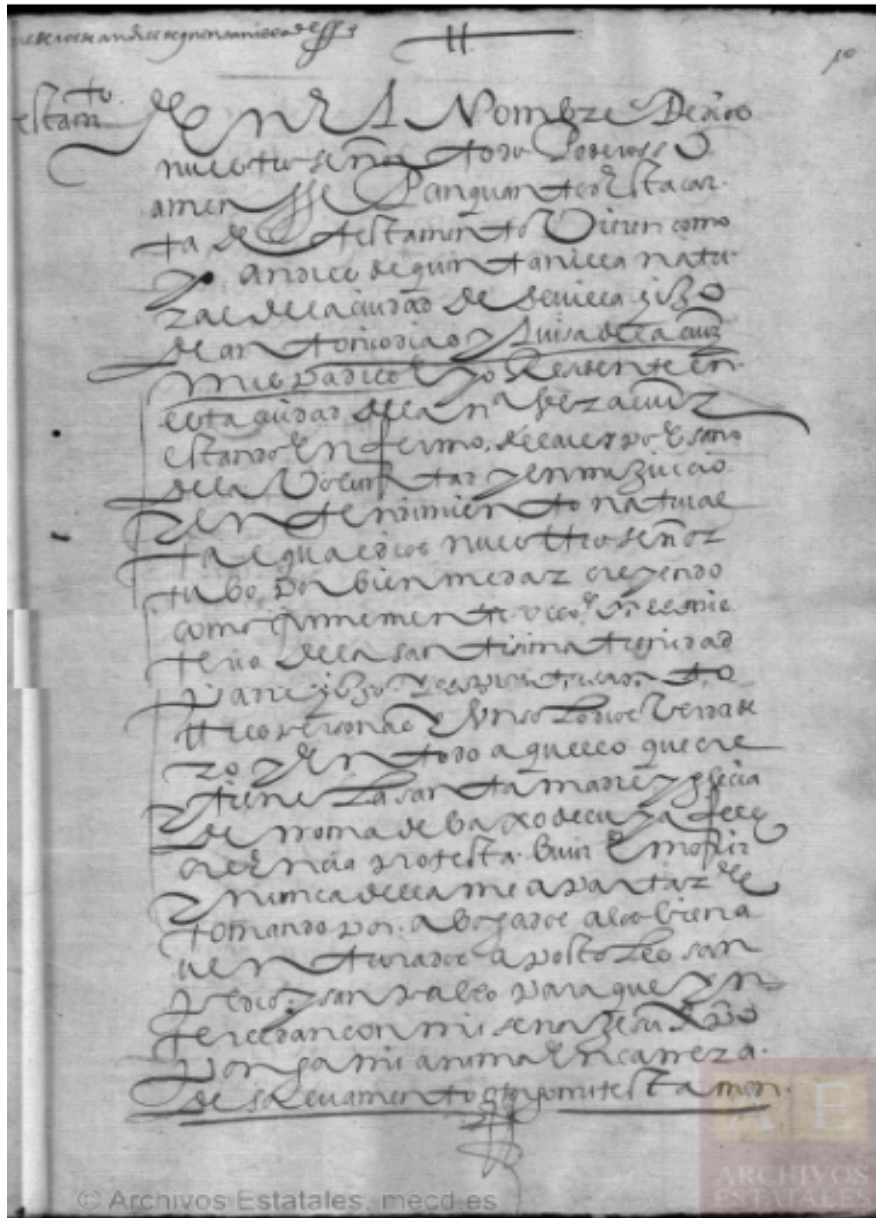 tt
10
testamto
En el Nombre de dios
nuestro señor todo Poderosso
amen sse Pan quantos esta car
ta de testamento Vieren como
yo andres de quintanilla natu
ral de la ciudad de seuilla hijo
de antonio dias y Luisa de la cruz
mis padres y residente en
esta ciudad de la na beracruz
estando enfermo del cuerpo e sano
de la Voluntad y en mi juicio
y entendimiento natural
tal qual dios nuestro señor
tubo por bien me dar creyendo
como firmemente creo en el mis
terio de la santisima trenidad
padre hijo y espiritu santo
tres personas e Un solo dios Verdade
ro y en todo aquello que cree
y tiene La santa madre yglesia
de rroma debaxo de cuya fee e
creencia protesta biuir e morir
y nunca della me apartar
tomando por abogados a los biena
uenturados apostoles san
pedro y san pablo para que yn
tercedan con mi señor jesu xpo
ponga mi anima en carrera
de saluamento otorgo mi testamen
© Archivos Estatales, mecd.es
AE
ARCHIVOS
ESTATALES